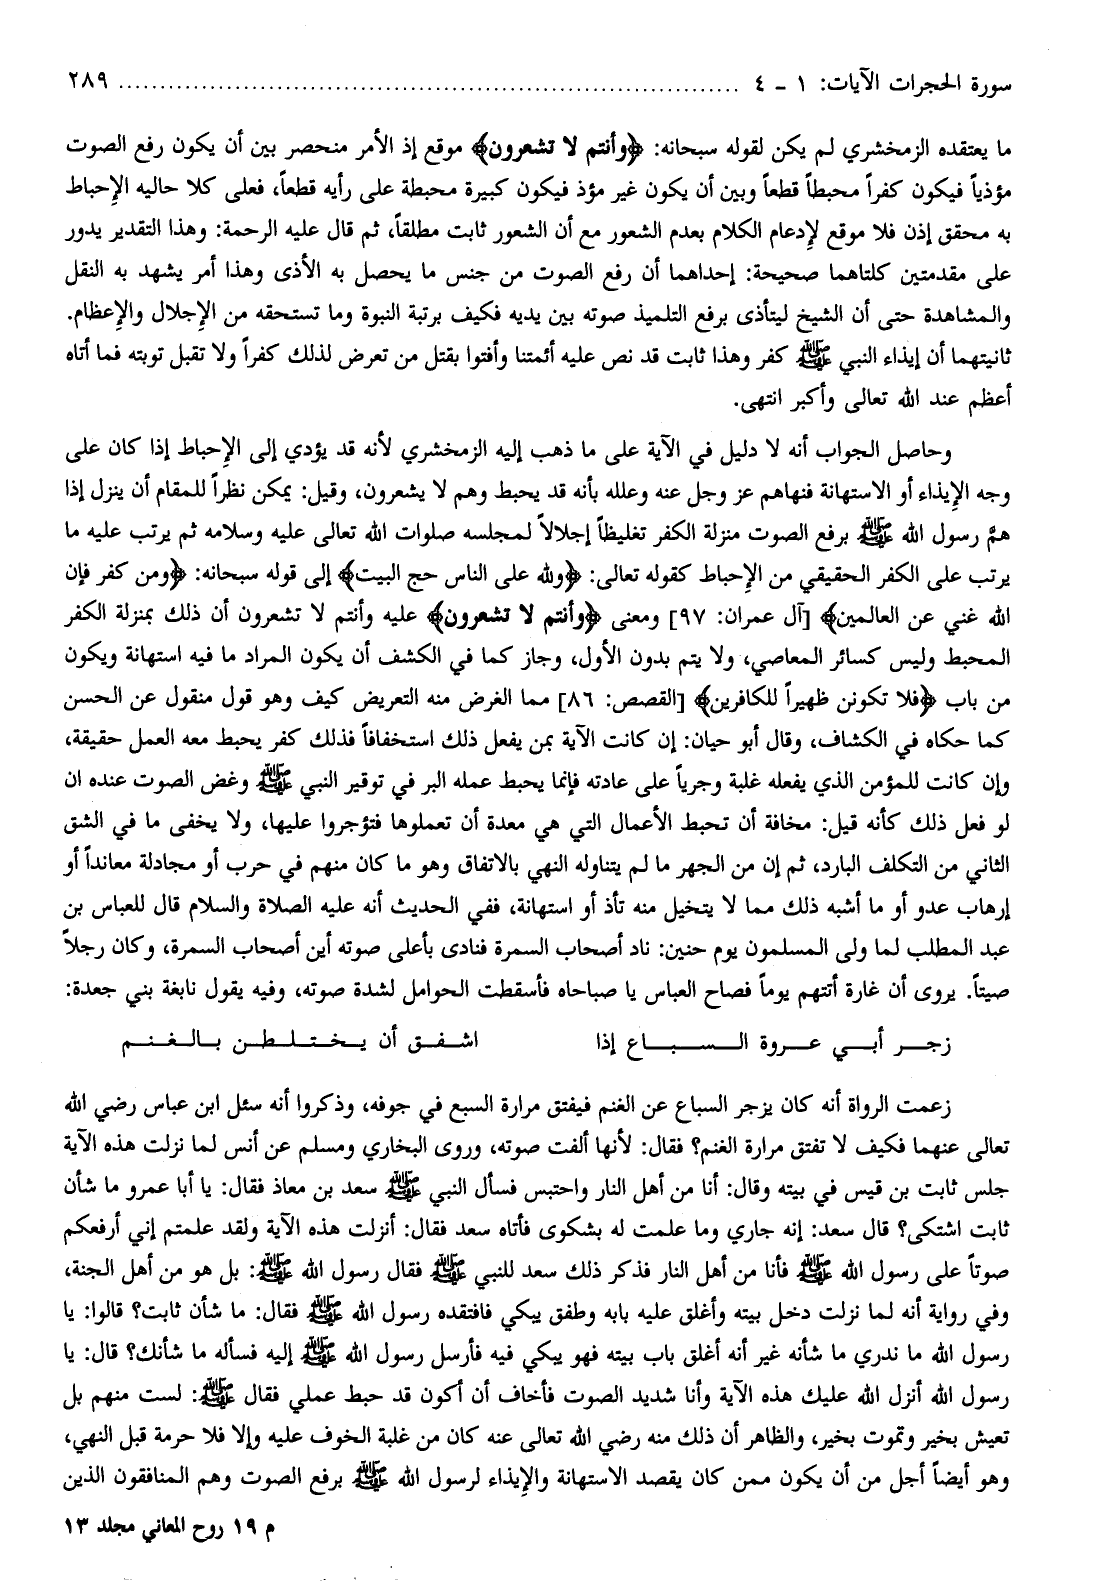 سورة الحجرات الآيات: ١ - ٤ ........................................................................... ٢٨٩
ما يعتقده الزمخشري لم يكن لقوله سبحانه: ﴿وأنتم لا تشعرون﴾ موقع إذ الأمر منحصر بين أن يكون رفع الصوت
مؤذياً فيكون كفراً محبطاً قطعاً وبين أن يكون غير مؤذ فيكون كبيرة محبطة على رأيه قطعاً، فعلى كلا حاليه الإِحباط
به محقق إذن فلا موقع لإِدعام الكلام بعدم الشعور مع أن الشعور ثابت مطلقاً، ثم قال عليه الرحمة: وهذا التقدير يدور
على مقدمتين كلتاهما صحيحة: إحداهما أن رفع الصوت من جنس ما يحصل به الأذى وهذا أمر يشهد به النقل
والمشاهدة حتى أن الشيخ ليتأذى برفع التلميذ صوته بين يديه فكيف برتبة النبوة وما تستحقه من الإِجلال والإِعظام.
ثانيتهما أن إيذاء النبي ﷺ كفر وهذا ثابت قد نص عليه أئمتنا وأفتوا بقتل من تعرض لذلك كفراً ولا تقبل توبته فما أتاه
أعظم عند الله تعالى وأكبر انتهى.
وحاصل الجواب أنه لا دليل في الآية على ما ذهب إليه الزمخشري لأنه قد يؤدي إلى الإِحباط إذا كان على
وجه الإِيذاء أو الاستهانة فنهاهم عز وجل عنه وعلله بأنه قد يحبط وهم لا يشعرون، وقيل: يمكن نظراً للمقام أن ينزل إذا
همَّ رسول الله ﷺ برفع الصوت منزلة الكفر تغليظاً إجلالاً لمجلسه صلوات الله تعالى عليه وسلامه ثم يرتب عليه ما
يرتب على الكفر الحقيقي من الإِحباط كقوله تعالى: ﴿ولله على الناس حج البيت﴾ إلى قوله سبحانه: ﴿ومن كفر فإن
الله غني عن العالمين﴾ [آل عمران: ٩٧] ومعنى ﴿وأنتم لا تشعرون﴾ عليه وأنتم لا تشعرون أن ذلك بمنزلة الكفر
المحبط وليس كسائر المعاصي، ولا يتم بدون الأول، وجاز كما في الكشف أن يكون المراد ما فيه استهانة ويكون
من باب ﴿فلا تكونن ظهيراً للكافرين﴾ [القصص: ٨٦] مما الغرض منه التعريض كيف وهو قول منقول عن الحسن
كما حكاه في الكشاف، وقال أبو حيان: إن كانت الآية بمن يفعل ذلك استخفافاً فذلك كفر يحبط معه العمل حقيقة،
وإن كانت للمؤمن الذي يفعله غلبة وجرياً على عادته فإنما يحبط عمله البر في توقير النبي ﷺ وغض الصوت عنده ان
لو فعل ذلك كأنه قيل: مخافة أن تحبط الأعمال التي هي معدة أن تعملوها فتؤجروا عليها، ولا يخفى ما في الشق
الثاني من التكلف البارد، ثم إن من الجهر ما لم يتناوله النهي بالاتفاق وهو ما كان منهم في حرب أو مجادلة معانداً أو
إرهاب عدو أو ما أشبه ذلك مما لا يتخيل منه تأذ أو استهانة، ففي الحديث أنه عليه الصلاة والسلام قال للعباس بن
عبد المطلب لما ولى المسلمون يوم حنين: ناد أصحاب السمرة فنادى بأعلى صوته أين أصحاب السمرة، وكان رجلاً
صيتاً. يروى أن غارة أتتهم يوماً فصاح العباس يا صباحاه فأسقطت الحوامل لشدة صوته، وفيه يقول نابغة بني جعدة:
زجر أبي عروة السباع إذا اشفق أن يختلطن بالغنم
زعمت الرواة أنه كان يزجر السباع عن الغنم فيفتق مرارة السبع في جوفه، وذكروا أنه سئل ابن عباس رضي الله
تعالى عنهما فكيف لا تفتق مرارة الغنم؟ فقال: لأنها ألفت صوته، وروى البخاري ومسلم عن أنس لما نزلت هذه الآية
جلس ثابت بن قيس في بيته وقال: أنا من أهل النار واحتبس فسأل النبي ﷺ سعد بن معاذ فقال: يا أبا عمرو ما شأن
ثابت اشتكى؟ قال سعد: إنه جاري وما علمت له بشكوى فأتاه سعد فقال: أنزلت هذه الآية ولقد علمتم إني أرفعكم
صوتاً على رسول الله ﷺ فأنا من أهل النار فذكر ذلك سعد للنبي ﷺ فقال رسول الله ﷺ: بل هو من أهل الجنة،
وفي رواية أنه لما نزلت دخل بيته وأغلق عليه بابه وطفق يبكي فافتقده رسول الله ﷺ فقال: ما شأن ثابت؟ قالوا: يا
رسول الله ما ندري ما شأنه غير أنه أغلق باب بيته فهو يبكي فيه فأرسل رسول الله ﷺ إليه فسأله ما شأنك؟ قال: يا
رسول الله أنزل الله عليك هذه الآية وأنا شديد الصوت فأخاف أن أكون قد حبط عملي فقال ﷺ: لست منهم بل
تعيش بخير وتموت بخير، والظاهر أن ذلك منه رضي الله تعالى عنه كان من غلبة الخوف عليه وإلا فلا حرمة قبل النهي،
وهو أيضاً أجل من أن يكون ممن كان يقصد الاستهانة والإِيذاء لرسول الله ﷺ برفع الصوت وهم المنافقون الذين
م ١٩ روح المعاني مجلد ١٣